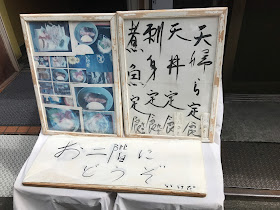 天婦ら定食
天丼定食
刺身定食
煮魚定食
お二階に
どうぞ
いけだ